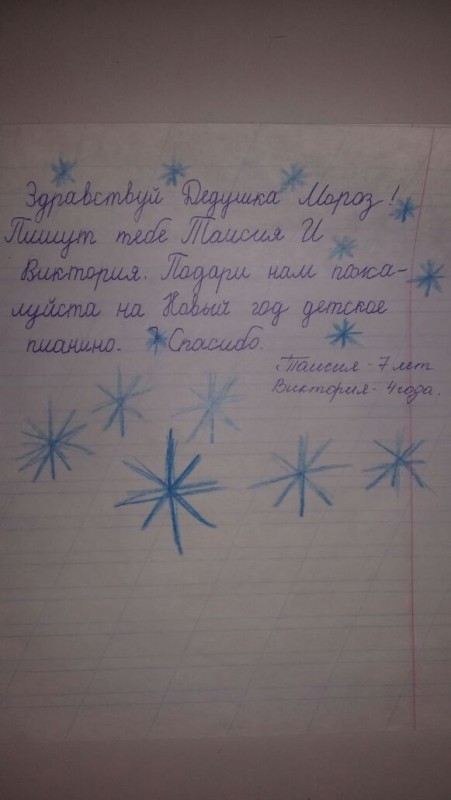 Здравствуй Дедушка Мороз!
Пишут тебе Таисия И
Виктория. Подари нам пожа-
луйста на Новый год детское
пианино. Спасибо.
Таисия - 7 лет
Виктория - 4 года.